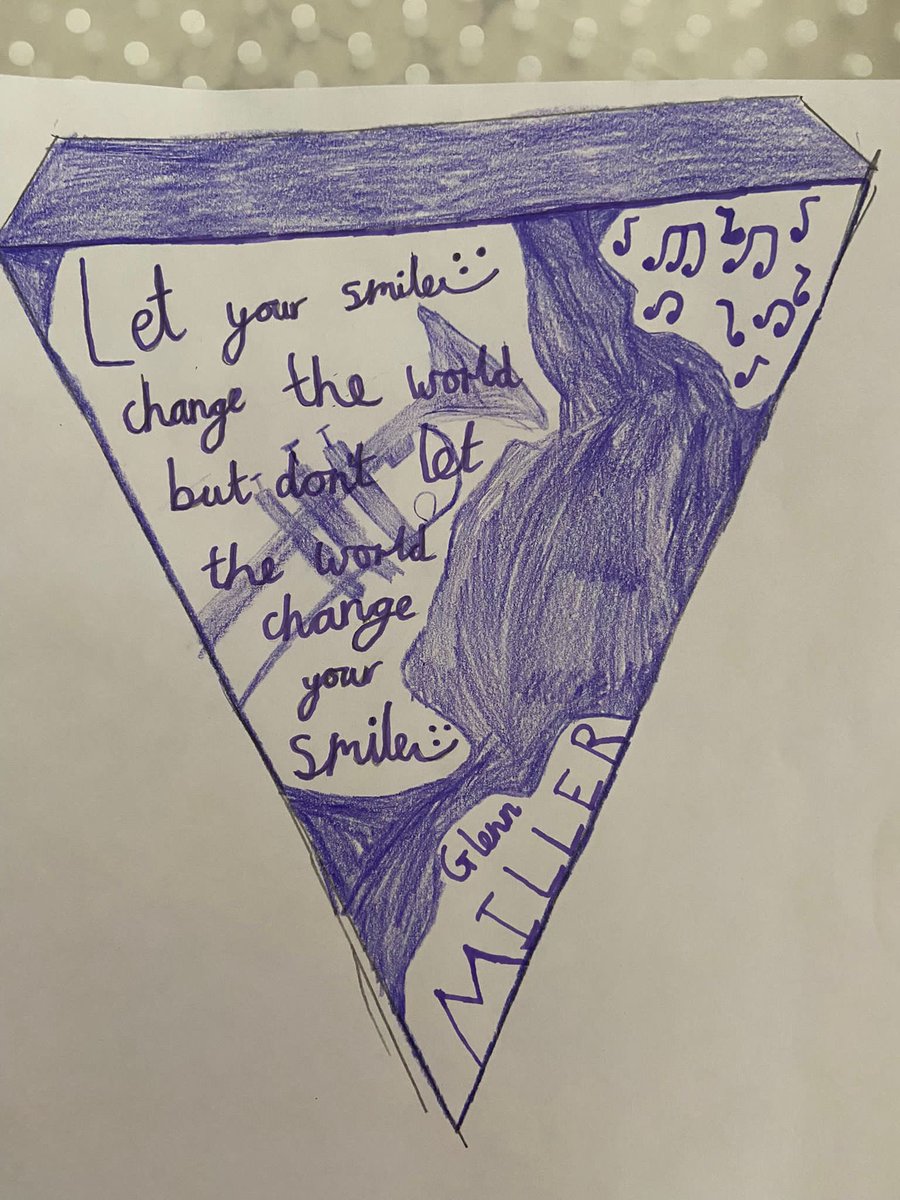 Let your smile
change the world
but dont let
the world
change
your
smile
Glenn
MILLER